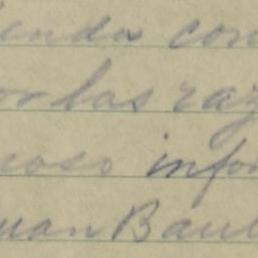 ienda con
or las raz
uoso infor
uan Baut